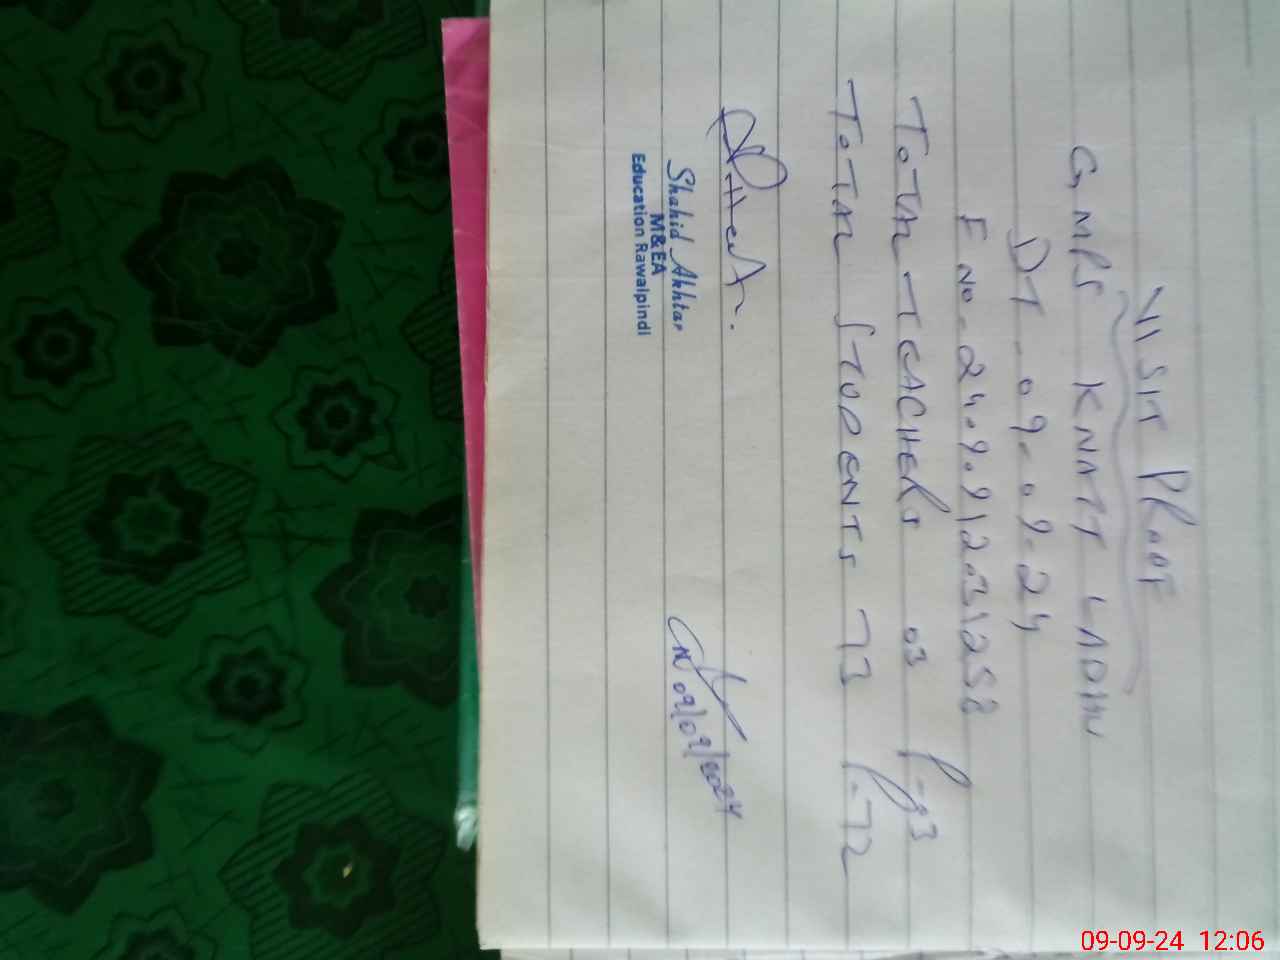 VISIT PROOF
GMPS KNATT LADHU
DT. 09.09.24
F No. 24.9.9.12.31258
TOTAL TEACHERS 03 P-03
TOTAL STUDENTS 73 P-72
Shahid Akhtar
M&EA
Education Rawalpindi
09/09/2024
09-09-24 12:06